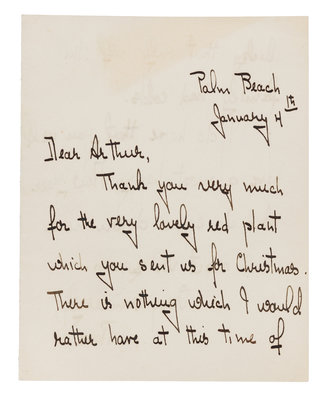 Palm Beach
January 4th
Dear Arthur,
Thank you very much
for the very lovely red plant
which you sent us for Christmas.
There is nothing which I would
rather have at this time of